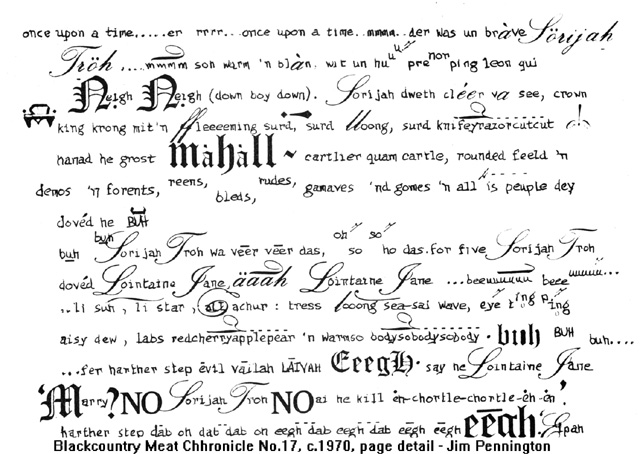 once upon a time.....er rrrr...once upon a time..mmm..der was un bràve Sörijah
Tröh ....mmmm son warm 'n blàn. wit un hu prenonping leon gui
Neigh Neigh (down boy down). Sorijah dweth cléer va see, crown
king krong mit'n ffleeeening surd, surd lloong, surd knifeyrazorcutcut
hanad he grost màhàll ~ cartlier quam cartle, rounded feeld 'n
denos 'n forents, reens, bleds, rudes, gamaves 'nd gomes 'n all is peuple dey
dovéd he BUH
buh buh Sorijah Troh wa vēer vēer das, oh so so ho das.for five Sorijah Troh
dovéd Lointaine Jane, äääh Lointaine Jane ...beeuuuuuu beeeuuuuu...
..li suh, li star, alt achur : tress looong sea-sai wave, eye ting ping
aisy dew, labs redcherryapplepear 'n warmso bodysobodysobody. buh BUH buh....
...fer harther step ēvil vāilah LĀIYAH EEEgH. say he Lointaine Jane
'Marry? NO Sorijah Troh NO ai he kill èh-chortle-chortle-èh-èh'.
harther step dab oh dab dab oh eegh dab eegh dab eegh eegh eēah.
Blackcountry Meat Chhronicle No.17, c.1970, page detail - Jim Pennington